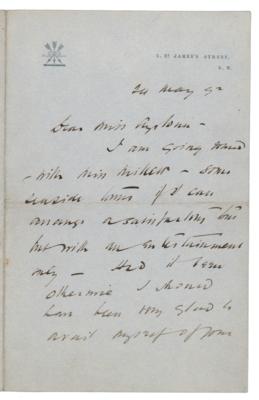 St JAMES'S STREET,
S. W.
24 May 92
Dear Miss
I am going round
- with Miss - some
seaside towns if I can
arrange a satisfactory
but with an Entertainment
only - Had it been
otherwise I should
have been very glad to
avail myself of your